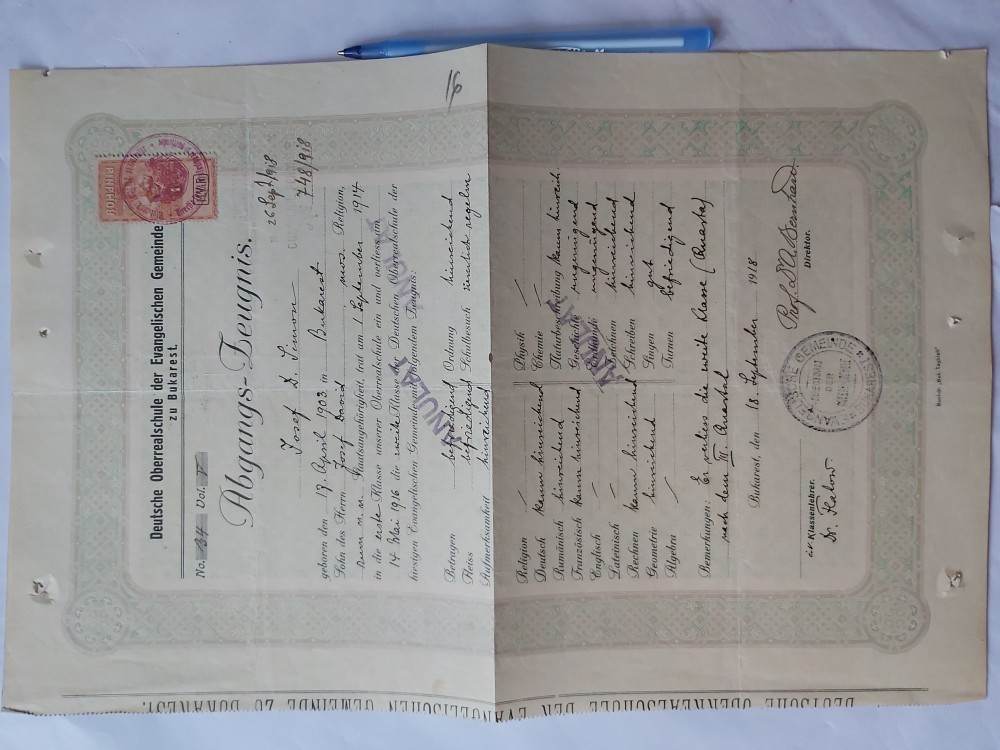 16
Deutsche Oberrealschule der Evangelischen Gemeinde
zu Bukarest.
No. 34 Vol. V
26 Sept/918
Abgangs-Zeugnis.
748/918
Iosef D. Simon
geboren den 19. April 1903 in Bukarest
Sohn des Herrn Josef David, mos. Religion,
rum. Staatsangehörigkeit, trat am 1 September 1914
in die erste Klasse unserer Oberrealschule ein und verliess im
14 Mai 1916 die zweite Klasse der Deutschen Oberrealschule der
hiesigen Evangelischen Gemeinde mit folgendem Zeugnis:
ANULAT
Betragen befriedigend Ordnung hinreichend
Fleiss befriedigend Schulbesuch ziemlich regelm
Aufmerksamkeit hinreichend
Religion — Physik —
Deutsch kaum hinreichend Chemie —
Rumänisch hinreichend Naturbeschreibung kaum hinreich
Französisch kaum hinreichend Geschichte ungenügend
Englisch — Erdkunde ungenügend
Lateinisch — Zeichnen hinreichend
Rechnen kaum hinreichend Schreiben hinreichend
Geometrie hinreichend Singen gut
Algebra — Turnen befriedigend
ANULAT
Bemerkungen: Er verliess die zweite Klasse (Quarta)
nach dem III Quartal
Bukarest, den 18. September 1918
i.V. Klassenlehrer.
Dr. Flatow
EVANGELISCHE GEMEINDE BUKAREST
Direktor.
DEUTSCHE OBERREALSCHULE DER EVANGELISCHEN GEMEINDE ZU BUKAREST.